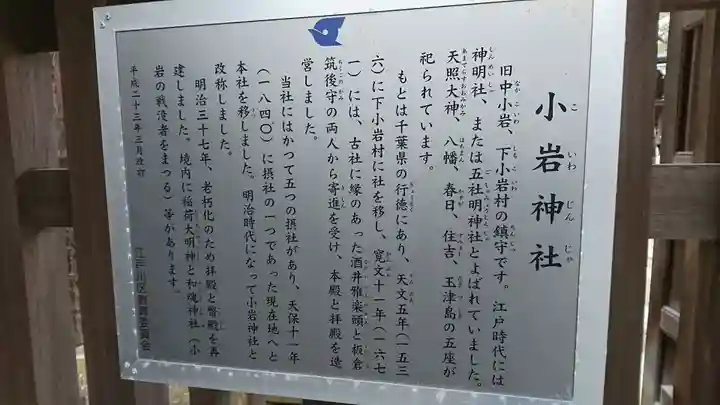 小岩神社
こいわじんじゃ
旧中小岩、下小岩村の鎮守です。江戸時代には
神明社、または五社明神社とよばれていました。
天照大神、八幡、春日、住吉、玉津島の五座が
祀られています。
もとは千葉県の行徳にあり、天文五年(一五三
六)に下小岩村に社を移し、寛文十一年(一六七
一)には、古社に縁のあった酒井雅楽頭と板倉
筑後守の両人から寄進を受け、本殿と拝殿を造
営しました。
当社にはかつて五つの摂社があり、天保十一年
(一八四〇)に摂社の一つであった現在地へと
本社を移しました。明治時代になって小岩神社と
改称しました。
明治三十七年、老朽化のため拝殿と幣殿を再
建しました。境内に稲荷大明神と和魂神社(小
岩の戦没者をまつる)等があります。
平成二十三年三月改訂
江戸川区教育委員会